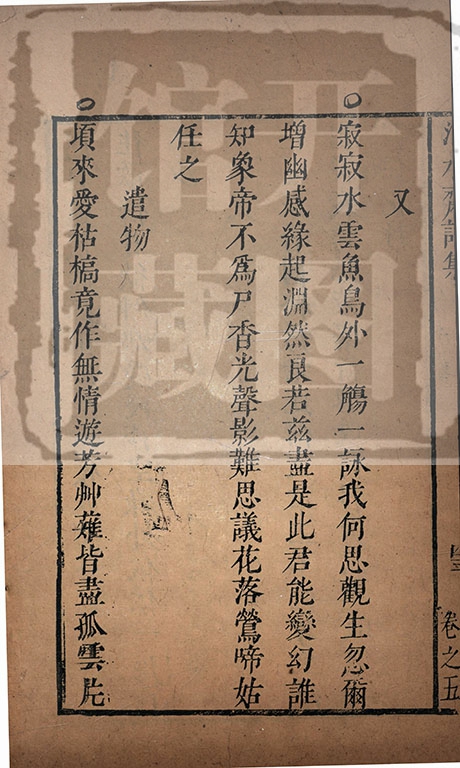 詩集
卷之五
又
寂寂水雲魚鳥外一觴一詠我何思觀生忽爾
增幽感緣起淵然良若兹盡是此君能變幻誰
知象帝不爲尸香光聲影難思議花落鶯啼姑
任之
遣物
項來愛枯槁竟作無情遊芳艸薙皆盡孤雲片
开图
馆藏